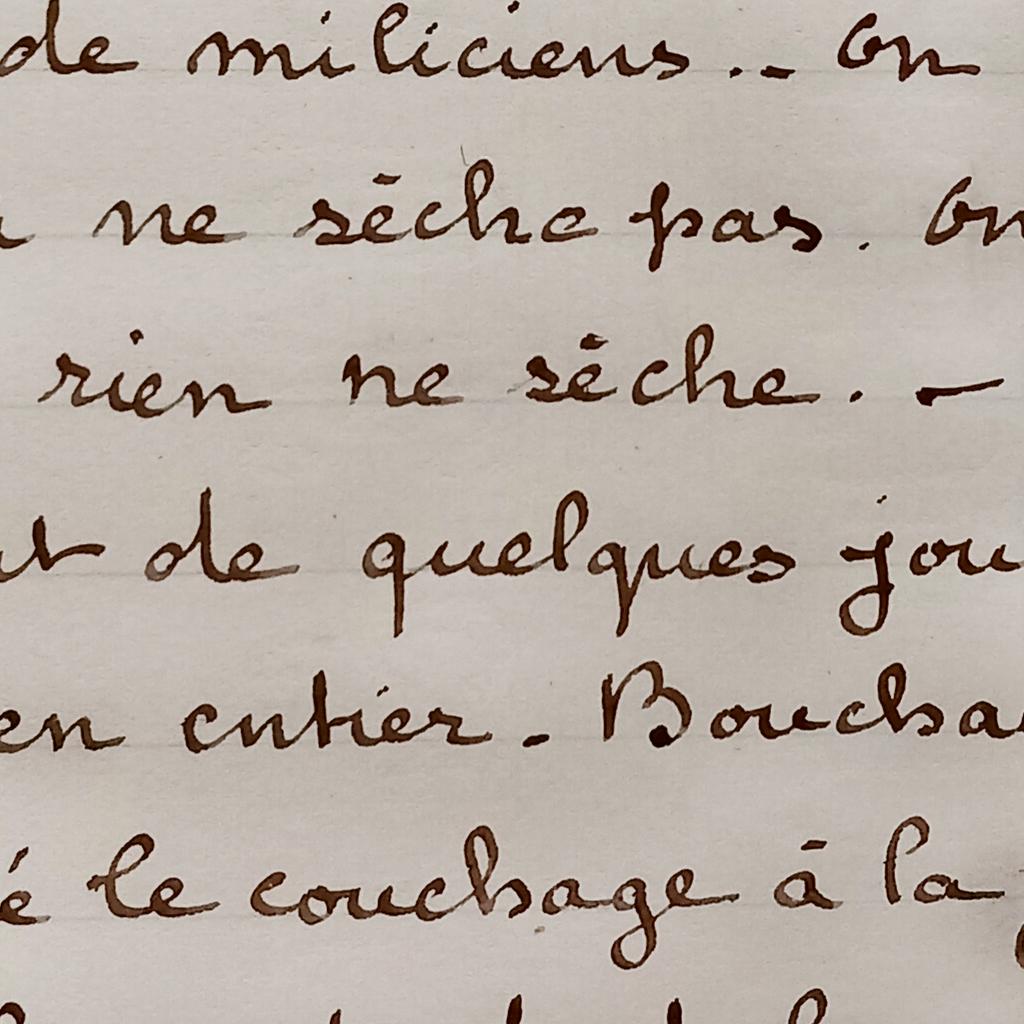 de miliciens .. On
ne sèche pas. On
rien ne sèche. —
de quelques jou
en entier. Boucha
é le couchage à la